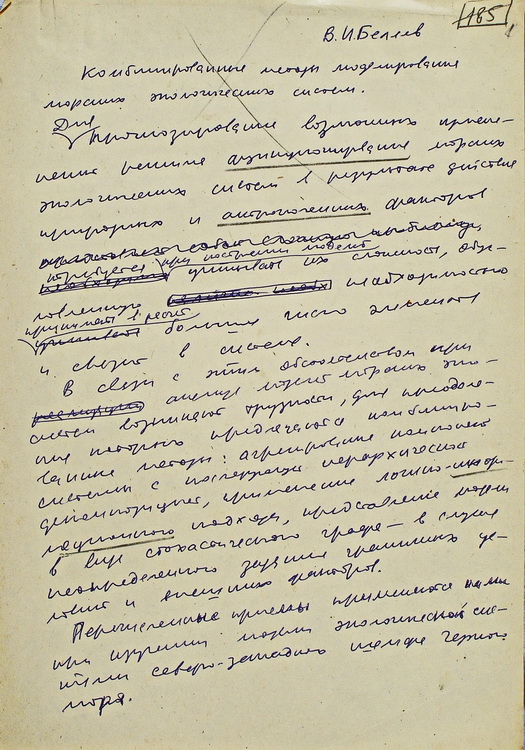 185
В.И.Беляев
Комбинированные методы моделирования
морских экологических систем.
Для
прогнозирования возможных измене-
ния режима функционирования морских
экологических систем в результате действия
природных и антропогенных факторов
требуется при построении моделей
учитывать их сложность, обус-
ловленную необходимостью
принимать в расчет
большое число элементов
и связей в системе.
В связи с этим обстоятельством при
анализе моделей морских эко-
систем возникают трудности, для преодоле-
ния которых предлагаются комбиниро-
ванные методы: агрегирование компонент
системы с последующей иерархической
декомпозицией, применение логико-инфор-
мационного подхода, представление модели
в виде стохастического графа – в случае
неопределенного задания граничных ус-
ловий и внешних факторов.
Перечисленные приемы применяются нами
при изучении модели экологической сис-
темы северо-западного шельфа Черного
моря.